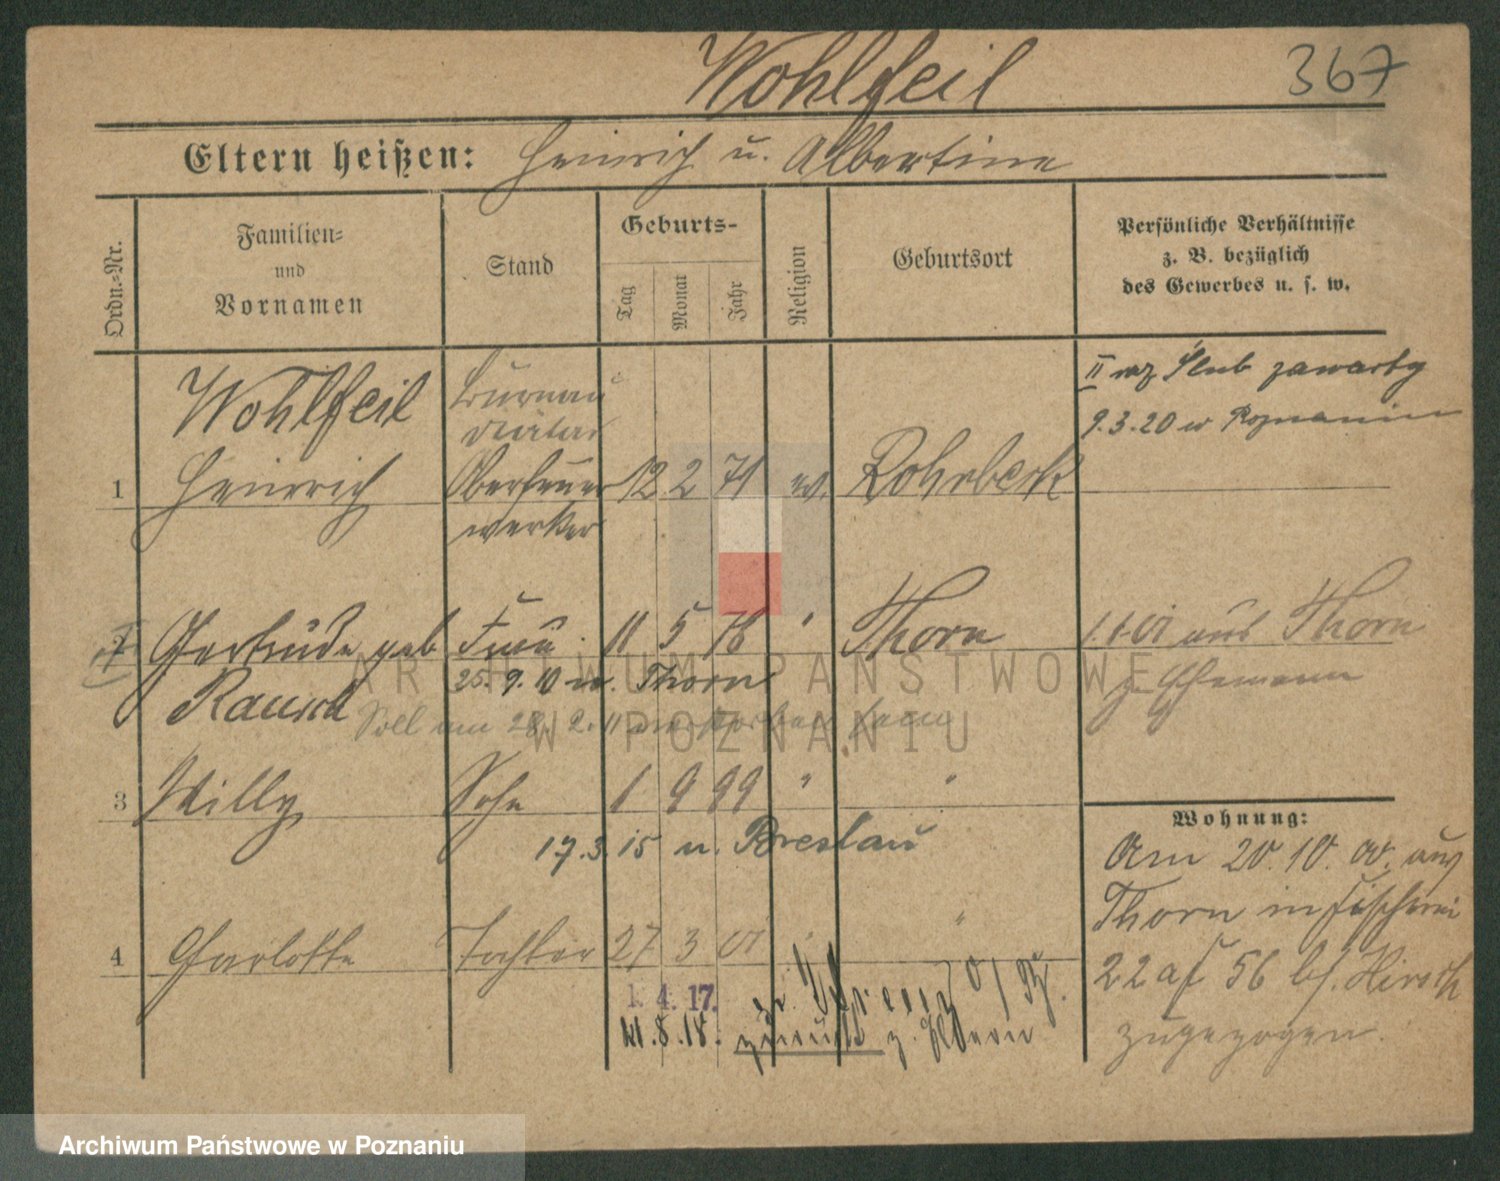 Wohlfeil
367
Eltern heißen: Heinrich u. Albertine
Ordn.-Nr.
Familien-
und
Vornamen
Stand
Geburts-
Tag
Monat
Jahr
Religion
Geburtsort
Persönliche Verhältnisse
z. B. bezüglich
des Gewerbes u. s. w.
Wohlfeil
Büreau
Diätar
II raz Ślub zawarty
9.3.20 w Poznaniu
1 Heinrich Oberfeuer 12 2 71 ev. Rohrbeck
werker
2 Gertrude geb Frau 11 5 76 " Thorn
Rausch
25. 9. 10 n. Thorn
Soll am 28. 2. 11 verstorben sein
1.1.01 aus Thorn
z. Ehemann
3 Willy Sohn 1 9 99 " "
17.3.15 n. Breslau
4 Charlotte Tochter 27 3 01 " "
1. 4. 17.
8. 18. zurück z. Eltern
Wohnung:
Am 20. 10. 00. aus
Thorn in Fischerei
22a 56 bf. Hirsch
zugezogen.
ARCHIWUM PAŃSTWOWE
W POZNANIU
Archiwum Państwowe w Poznaniu